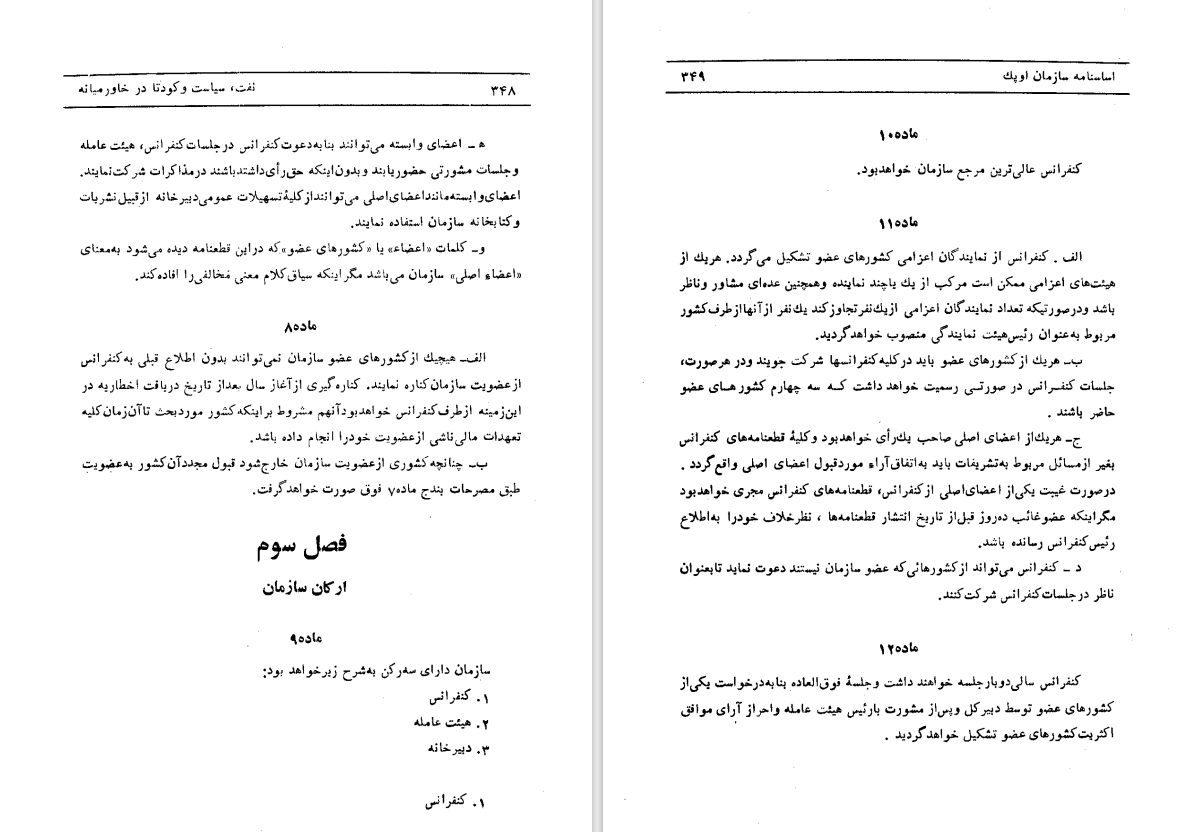 ۳۴۸ نفت، سیاست و کودتا در خاورمیانه
ه ـ اعضای وابسته می‌توانند بنا به دعوت کنفرانس در جلسات کنفرانس، هیئت عامله
و جلسات مشورتی حضور یابند و بدون اینکه حق رأی داشته باشند در مذاکرات شرکت نمایند.
اعضای وابسته مانند اعضای اصلی می‌توانند از کلیهٔ تسهیلات عمومی دبیرخانه از قبیل نشریات
و کتابخانه سازمان استفاده نمایند.
و ـ کلمات «اعضاء» یا «کشورهای عضو» که در این قطعنامه دیده می‌شود به‌معنای
«اعضاء اصلی» سازمان می‌باشد مگر اینکه سیاق کلام معنی مخالفی را افاده کند.
ماده ۸
الف ـ هیچیك از کشورهای عضو سازمان نمی‌توانند بدون اطلاع قبلی به کنفرانس
از عضویت سازمان کناره نمایند. کناره‌گیری از آغاز سال بعد از تاریخ دریافت اخطاریه در
این زمینه از طرف کنفرانس خواهد بود آنهم مشروط بر اینکه کشور مورد بحث تا آن زمان کلیه
تعهدات مالی ناشی از عضویت خود را انجام داده باشد.
ب ـ چنانچه کشوری از عضویت سازمان خارج شود قبول مجدد آن کشور به عضویت
طبق مصرحات بند ج ماده ۷ فوق صورت خواهد گرفت.
فصل سوم
ارکان سازمان
ماده ۹
سازمان دارای سه رکن به‌شرح زیر خواهد بود:
۱. کنفرانس
۲. هیئت عامله
۳. دبیرخانه
۱. کنفرانس
اساسنامه سازمان اوپك ۳۴۹
ماده ۱۰
کنفرانس عالی‌ترین مرجع سازمان خواهد بود.
ماده ۱۱
الف . کنفرانس از نمایندگان اعزامی کشورهای عضو تشکیل می‌گردد. هریك از
هیئت‌های اعزامی ممکن است مرکب از یك یا چند نماینده وهمچنین عده‌ای مشاور وناظر
باشد ودرصورتیکه تعداد نمایندگان اعزامی از یك نفر تجاوز کند یك نفر از آنها از طرف کشور
مربوط به‌عنوان رئیس هیئت نمایندگی منصوب خواهد گردید.
ب ـ هریك از کشورهای عضو باید در کلیه کنفرانسها شرکت جویند ودر هرصورت،
جلسات کنفرانس در صورتی رسمیت خواهد داشت که سه چهارم کشورهای عضو
حاضر باشند .
ج ـ هریك از اعضای اصلی صاحب یك رأی خواهد بود وکلیهٔ قطعنامه‌های کنفرانس
بغیر از مسائل مربوط به تشریفات باید به اتفاق آراء مورد قبول اعضای اصلی واقع گردد .
درصورت غیبت یکی از اعضای اصلی از کنفرانس، قطعنامه‌های کنفرانس مجری خواهد بود
مگر اینکه عضو غائب ده روز قبل از تاریخ انتشار قطعنامه‌ها ، نظر خلاف خود را به اطلاع
رئیس کنفرانس رسانده باشد.
د ـ کنفرانس می‌تواند از کشورهائی که عضو سازمان نیستند دعوت نماید تا بعنوان
ناظر در جلسات کنفرانس شرکت کنند.
ماده ۱۲
کنفرانس سالی دوبار جلسه خواهند داشت وجلسهٔ فوق‌العاده بنا به درخواست یکی از
کشورهای عضو توسط دبیرکل وپس از مشورت با رئیس هیئت عامله واحراز آرای موافق
اکثریت کشورهای عضو تشکیل خواهد گردید .